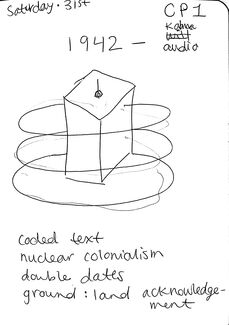 Saturday · 31st
CP1
audio
1942 –
coded text
nuclear colonialism
double dates
ground : land acknowledge-
ment